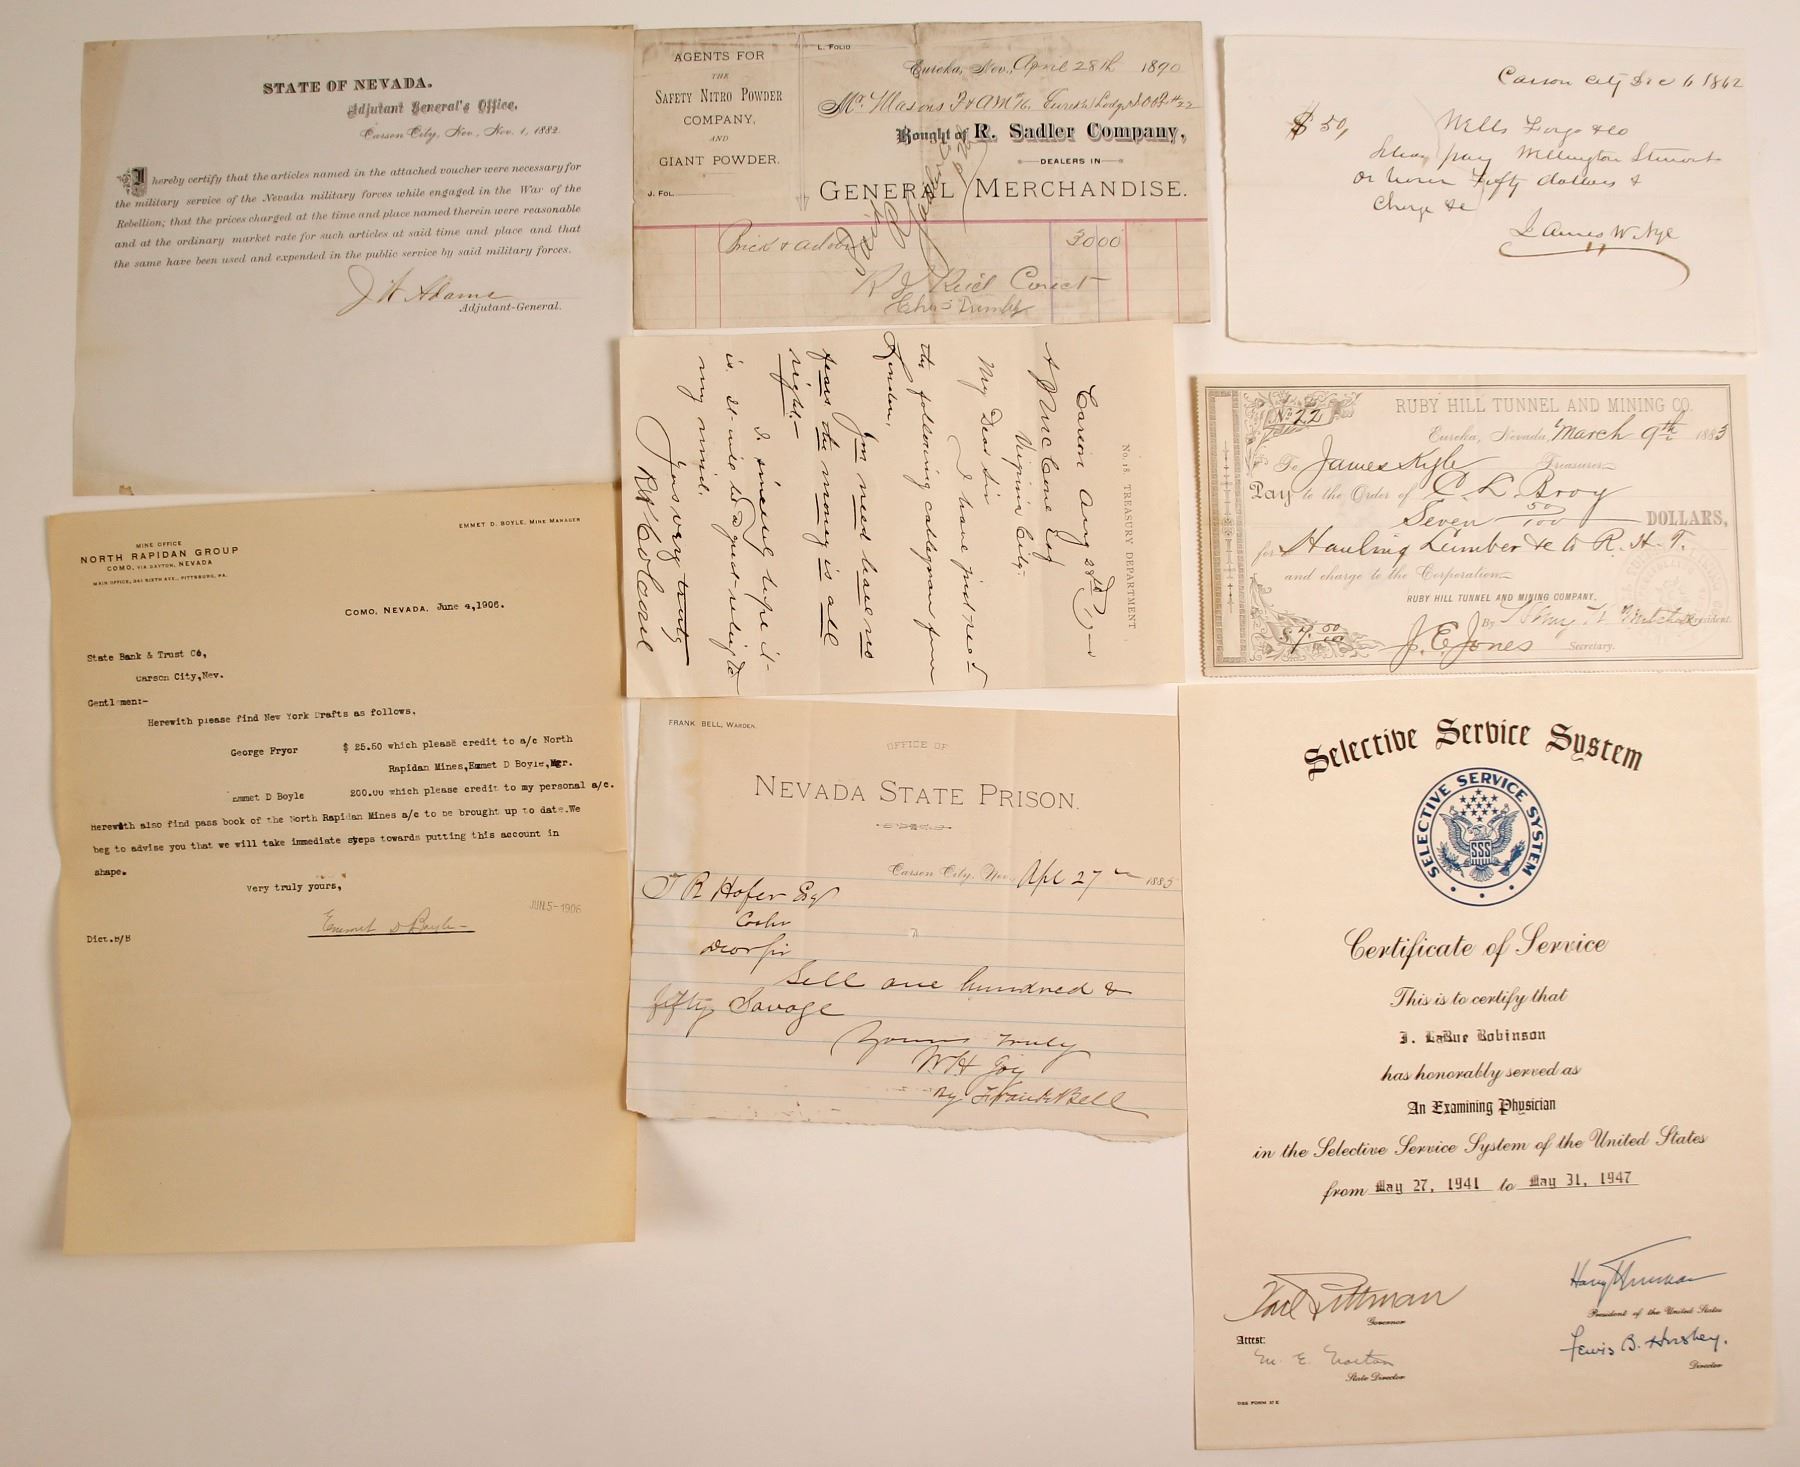 STATE OF NEVADA.
Adjutant General's Office.
Carson City, Nev., Nov. 1, 1882.
I hereby certify that the articles named in the attached voucher were necessary for
the military service of the Nevada military forces while engaged in the War of the
Rebellion; that the prices charged at the time and place named therein were reasonable
and at the ordinary market rate for such articles at said time and place and that
the same have been used and expended in the public service by said military forces.
J W Adams
Adjutant-General.
AGENTS FOR
THE
SAFETY NITRO POWDER
COMPANY,
AND
GIANT POWDER.
J. FOL.
L. FOLIO
Eureka, Nev., April 28th 1890
Mr. Masons F & AM
Bought of R. Sadler Company,
DEALERS IN
GENERAL MERCHANDISE.
3000
Carson City Dec 6 1862
$50,
Wells Fargo & Co
Please pay Wellington Stewart
or bearer Fifty dollars &
Charge &c
James W. Nye
No. 18 TREASURY DEPARTMENT
Carson Aug 28th
Virginia City.
My Dear Sir
I have just rec'd
the following cablegram from
London,
You need have no
fears the money is all
right.
I sincerely hope it
is. It will be a good relief to
my mind.
Yours very truly
RUBY HILL TUNNEL AND MINING CO.
No. 22
Eureka, Nevada, March 9th 1883
To James Kyle Treasurer
Pay to the Order of C. L. Broy
Seven 50/100 DOLLARS,
for Hauling Lumber &c to R. H. T.
and charge to the Corporation
RUBY HILL TUNNEL AND MINING COMPANY,
$7.50/100
By President.
J. E. Jones Secretary.
EMMET D. BOYLE, MINE MANAGER
MINE OFFICE
NORTH RAPIDAN GROUP
COMO, VIA DAYTON, NEVADA
MAIN OFFICE, 341 SIXTH AVE., PITTSBURG, PA.
COMO, NEVADA, June 4,1906.
State Bank & Trust Co,
Carson City,Nev.
Gentlemen:-
Herewith please find New York Drafts as follows,
George Fryor $ 25.50 which please credit to a/c North
Rapidan Mines,Emmet D Boyle,Mgr.
Emmet D Boyle 200.00 which please credit to my personal a/c.
Herewith also find pass book of the North Rapidan Mines a/c to be brought up to date.We
beg to advise you that we will take immediate steps towards putting this account in
shape.
Very truly yours,
JUN 5-1906
Emmet D Boyle
Dict.B/B
FRANK BELL, WARDEN.
OFFICE OF
NEVADA STATE PRISON.
Carson City, Nev., Apl 27 1885
T R Hofer Esq
Cashr
Dear Sir
Sell one hundred &
fifty Savage
Yours Truly
By Frank Bell
Selective Service System
SELECTIVE SERVICE SYSTEM
SSS
Certificate of Service
This is to certify that
J. LaRue Robinson
has honorably served as
An Examining Physician
in the Selective Service System of the United States
from May 27, 1941 to May 31, 1947
Vail Pittman
Governor
Harry S Truman
President of the United States
Attest:
Lewis B. Hershey.
Director
State Director
DSS FORM 37 E